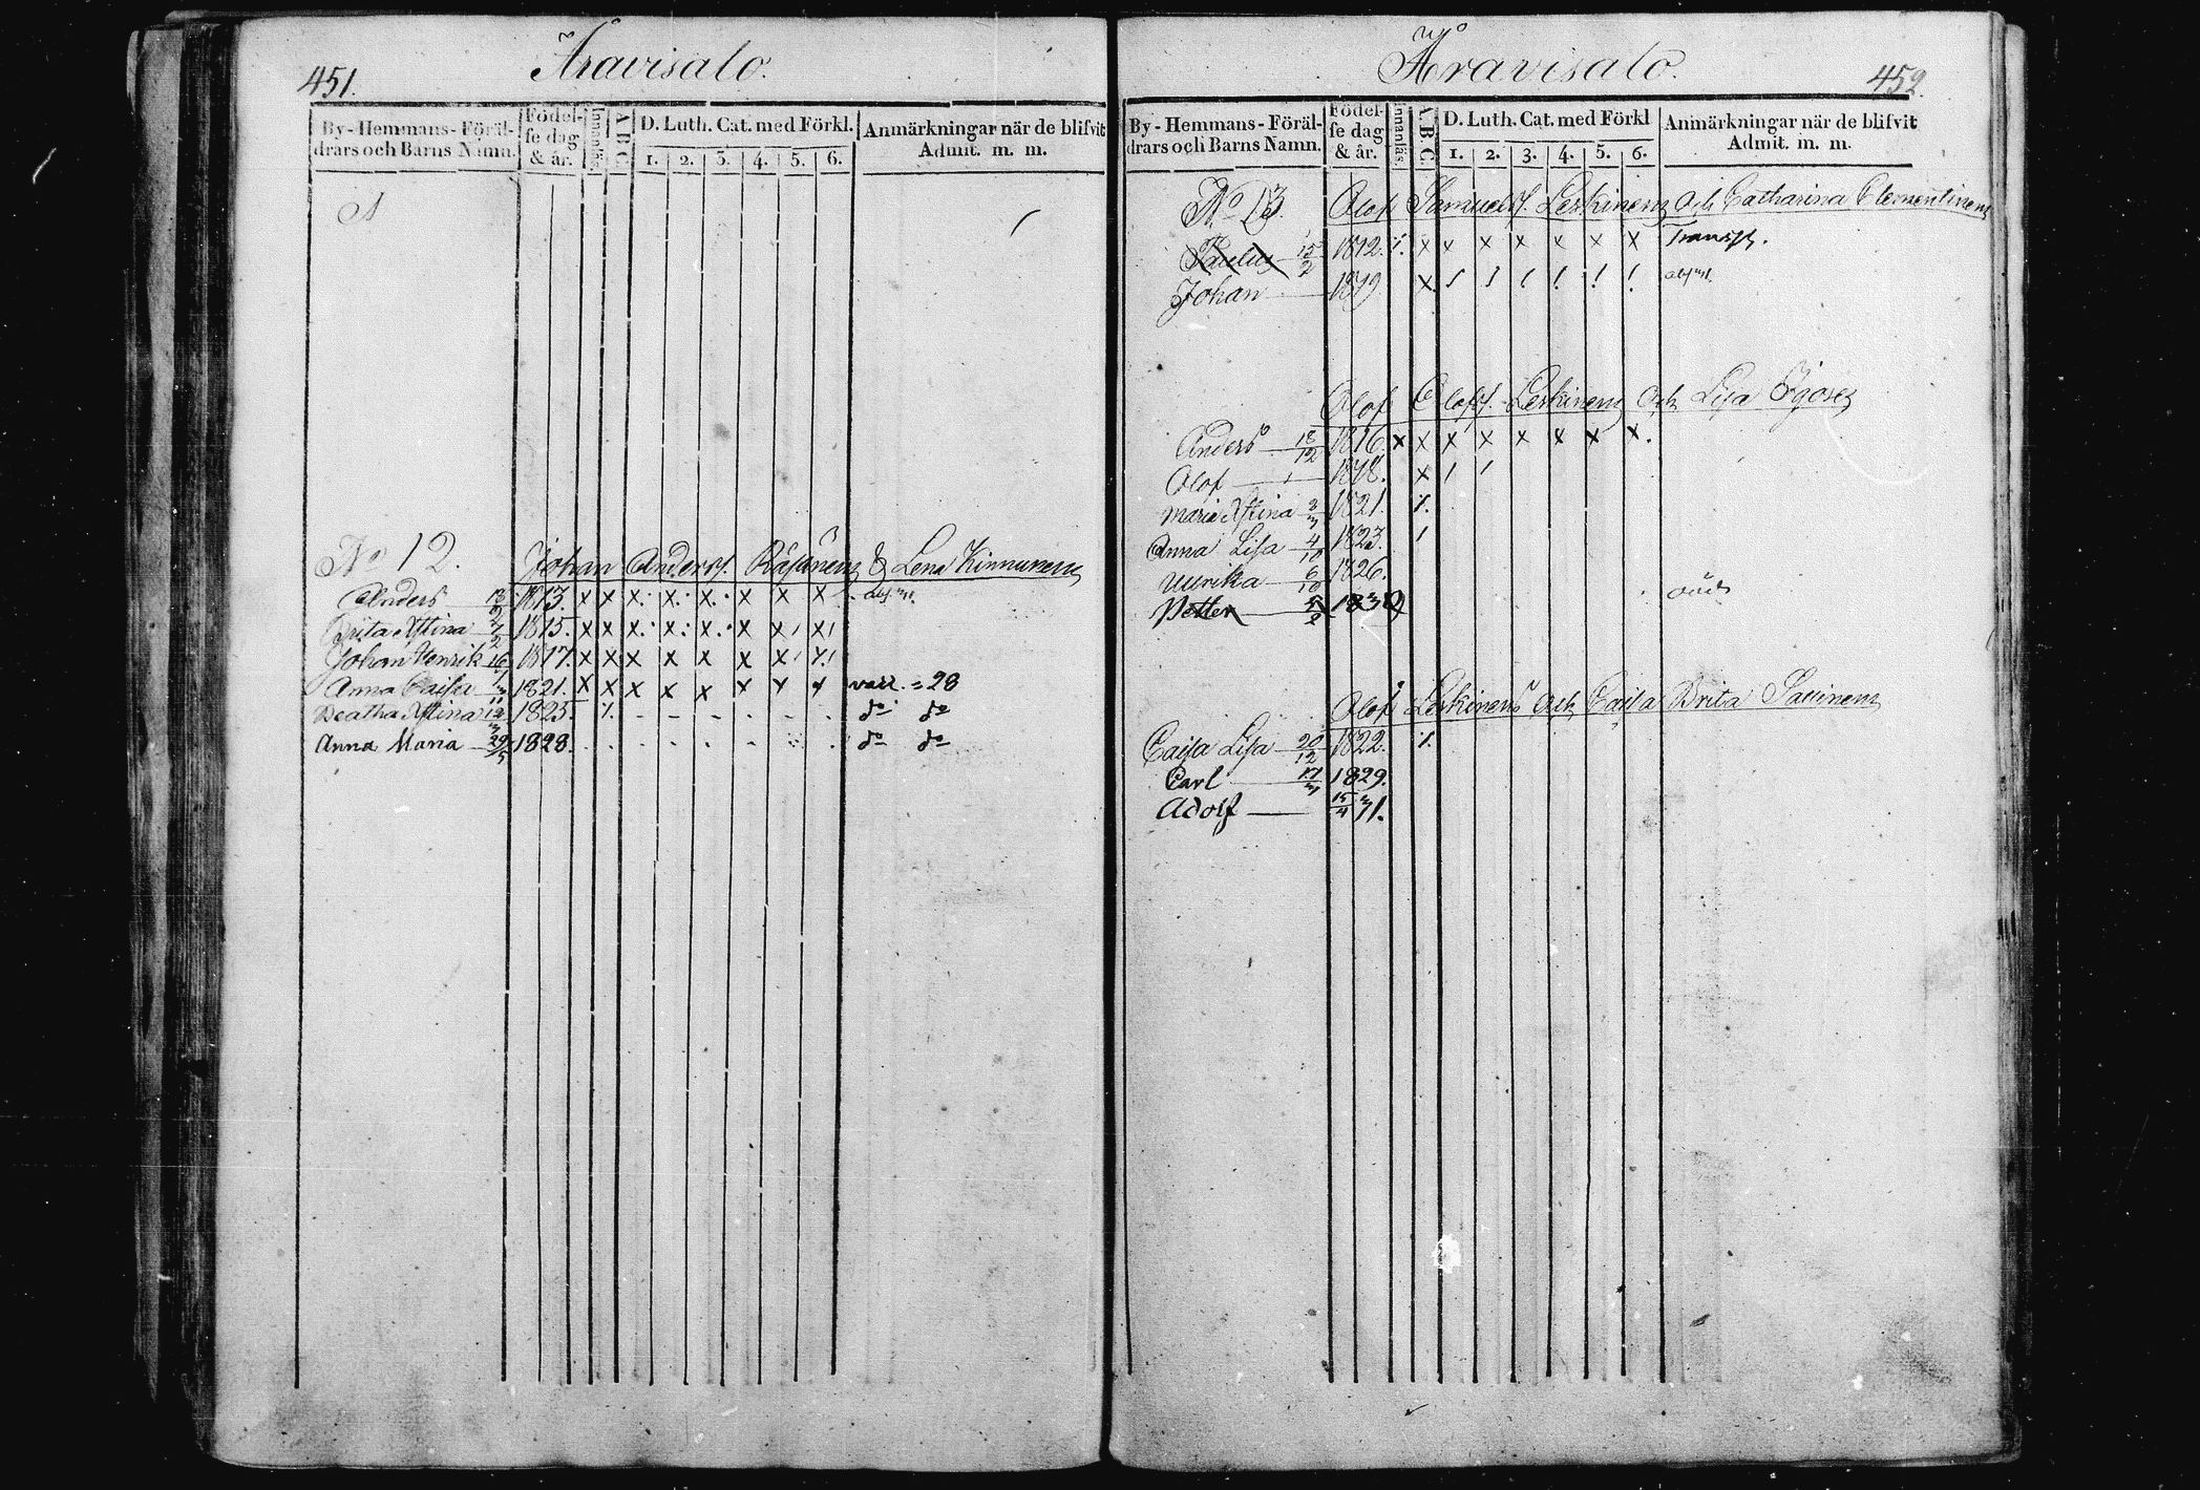 451.
Äravisalo.
By-Hemmans-Föräl-
drars och Barns Namn.
Födel-
se dag
& år.
Innanläs.
A B C.
D. Luth. Cat. med Förkl.
1. 2. 3. 4. 5. 6.
Anmärkningar när de blifvit
Admit. m. m.
No 12.
Johan Anderss. Räsänen & Lena Kinnunen
Anders 1813. x x x x x x x x
Brita Xstina 1815. x x x x x x x x
Johan Henrik 1817. x x x x x x x x
Anna Caisa 1821. x x x x x x x x vacc. = 28
Beatha Xstina 1825. do do
Anna Maria 1828. do do
452.
Äravisalo.
By-Hemmans-Föräl-
drars och Barns Namn.
Födel-
se dag
& år.
Innanläs.
A. B. C.
D. Luth. Cat. med Förkl
1. 2. 3. 4. 5. 6.
Anmärkningar när de blifvit
Admit. m. m.
No 13
Olof Samuelss. Leskinen och Catharina Clementinen
Paulus 15/2 1812. x x x x x x x
Johan 1819 x
Olof Olofss. Leskinen Och Lisa
Anders 18/12 1816. x x x x x x x x
Olof 1818. x
Maria Xstina 1821.
Anna Lisa 4/10 1823.
Ulrika 6/10 1826.
Petter död
Olof Leskinen Och Caisa Brita Savinen
Caisa Lisa 20/12 1822.
Carl 1829.
Adolf 15/4